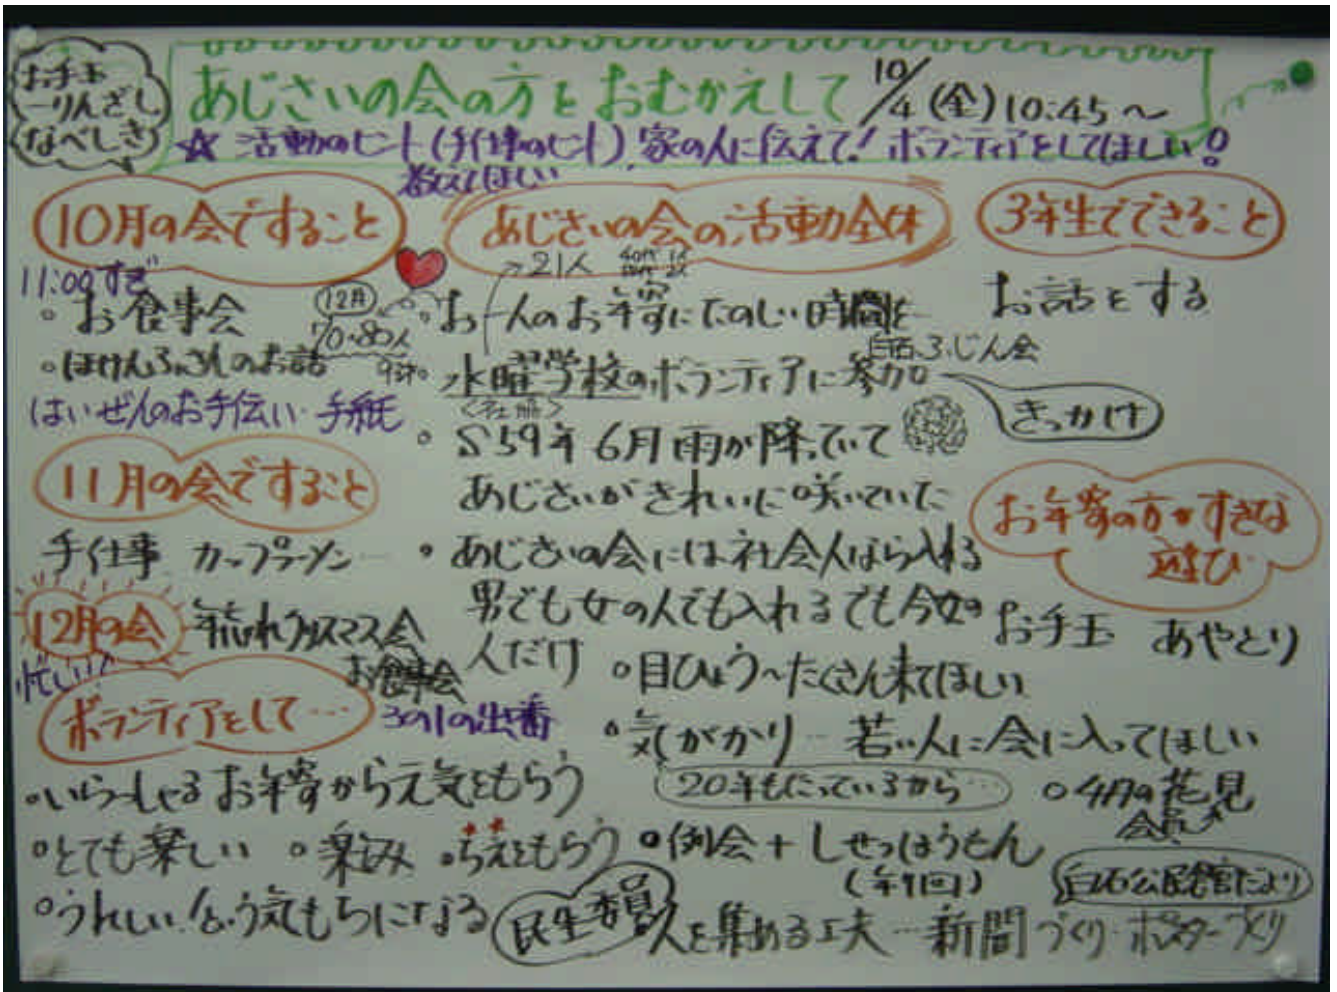 お手玉
一りんざし
なべしき
あじさいの会の方をおむかえして 10/4(金)10:45〜
☆ 活動のヒント(手仕事のヒント) 家の人に伝えて! ボランティアをしてほしい!
教えてほしい
10月の会ですること
11:00すぎ
。お食事会
12月
70〜80人
。ほけんふさんのお話
はいぜんのお手伝い 手紙
11月の会ですること
手仕事 カップラーメン…
12月の会 年忘れクリスマス会
忙しい! お食事会
3の1の出番
ボランティアをして…
・いらっしゃるお年寄から元気をもらう
。とても楽しい 。楽しみ 。ちえをもらう
。うれしい!という気もちになる
民生委員
あじさいの会の活動全体
21人
。お一人のお年寄にたのしい時間を
白石ふじん会
。水曜学校のボランティアに参加
きっかけ
。S59年6月雨が降っていて
あじさいがきれいに咲いていた
・あじさいの会には社会人なら入れる
男でも女の人でも入れるでも今女の
人だけ
。目ひょう〜たくさん来てほしい
。気がかり… 若い人に会に入ってほしい
20年もたっているから…
。4月の花見
会員で
。例会+しせつほうもん
(年1回)
白石公民館だより
人を集める工夫…新聞づくり・ポスターづくり
3年生でできること
お話をする
お年寄の方がすきな
遊び
お手玉 あやとり